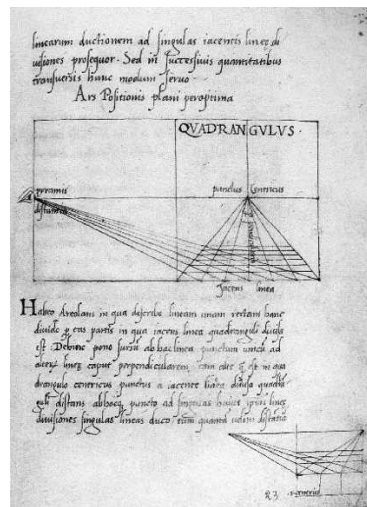 linearum ductionem ad singulas iacentis lineę di
uisiones prosequor. Sed in successiuis quantitatibus
transuersis hunc modum seruo.
Ars Positionis plani peroptima
QVADRANGVLVS.
punctus Centricus
distantia
Jacens linea
Habeo Areolam in qua describo lineam unam rectam hanc
diuido in eas partis in qua iacens linea quadranguli diuisa
est. Dehinc pono sursum ab hac linea punctum unicum ad
alterum lineę caput perpendicularem tam alte est in qua
drangulo centricus punctus a iacente linea diuisa quadra
distant ab hocque puncto ad singulas huius ipsius lineę
diuisiones singulas lineas duco tum quantam uelim distantia
23